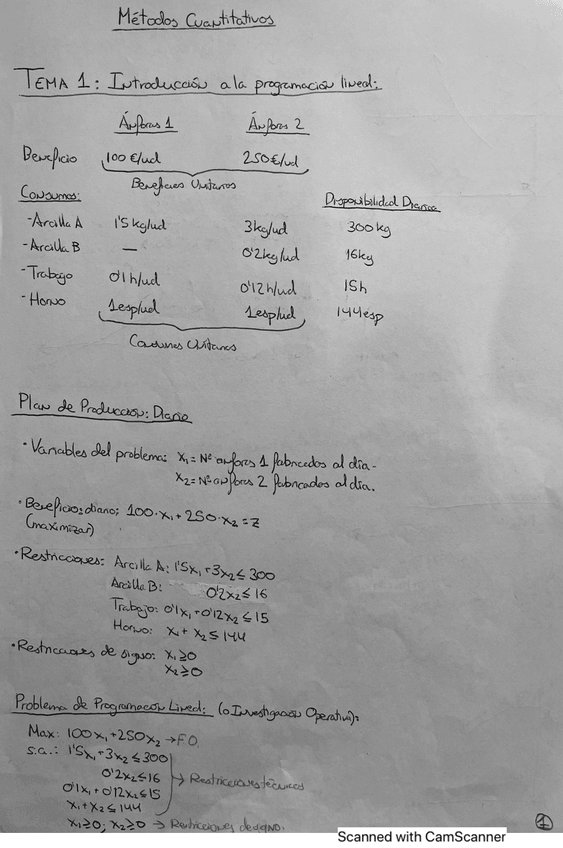 Métodos Cuantitativos
TEMA 1: Introducción a la programación lineal:
Ánforas 1 Ánforas 2
Beneficio 100 €/ud 250 €/ud
Beneficios Unitarios
Consumos: Disponibilidad Diaria
- Arcilla A 1'5 kg/ud 3 kg/ud 300 kg
- Arcilla B — 0'2 kg/ud 16 kg
- Trabajo 0'1 h/ud 0'12 h/ud 15 h
- Horno 1 esp/ud 1 esp/ud 144 esp
Consumos Unitarios
Plan de Producción: Diario
· Variables del problema: x₁ = Nº anforas 1 fabricados al día.
x₂ = Nº anforas 2 fabricados al día.
· Beneficio: diario: 100·x₁ + 250·x₂ = z
(maximizar)
· Restricciones: Arcilla A: 1'5x₁ + 3x₂ ≤ 300
Arcilla B: 0'2x₂ ≤ 16
Trabajo: 0'1x₁ + 0'12x₂ ≤ 15
Horno: x₁ + x₂ ≤ 144
· Restricciones de signo: x₁ ≥ 0
x₂ ≥ 0
Problema de Programación Lineal: (o Investigación Operativa):
Max: 100x₁ + 250x₂ → F.O.
s.a.: 1'5x₁ + 3x₂ ≤ 300
0'2x₂ ≤ 16 → Restricciones técnicas
0'1x₁ + 0'12x₂ ≤ 15
x₁ + x₂ ≤ 144
x₁ ≥ 0; x₂ ≥ 0 → Restricciones de signo.
1
Scanned with CamScanner